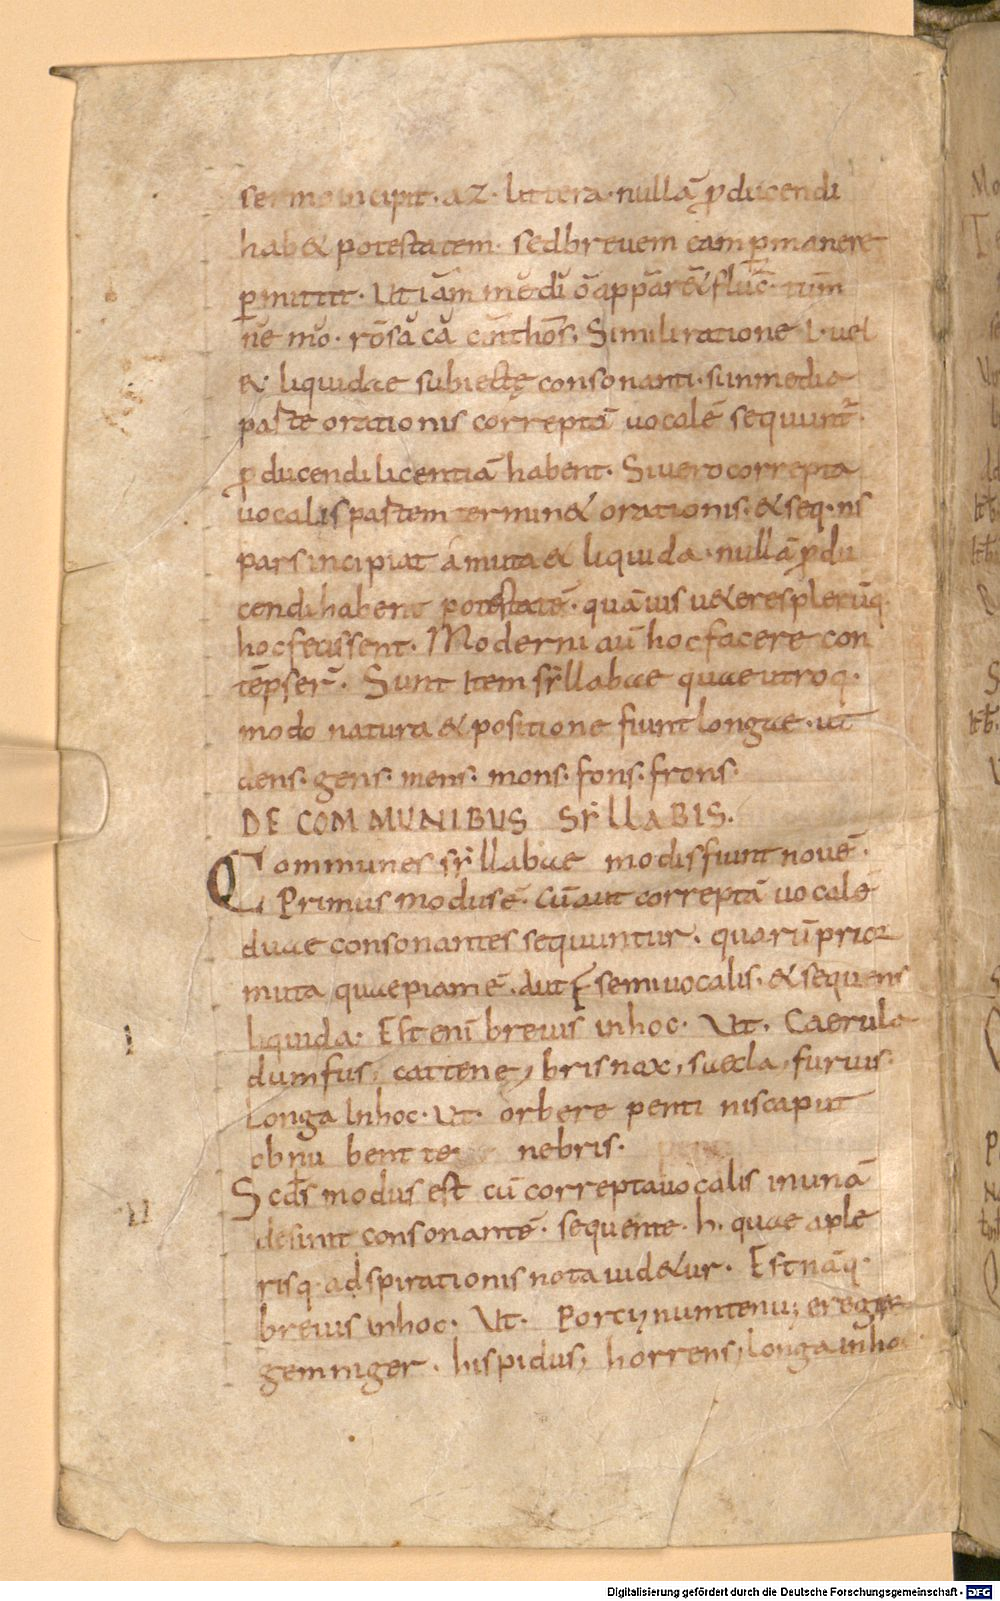 sermo incipit · a z · littera · nullā p̄ducendi
hab& potestatem · sed breuem eam p̄manere
p̄mittit · Ut iā̆m mĕdĭ ō appār& flŭc̄ · tūm
nē mŏ · rōsă că c̆inthōs, Simili ratione l · uel
r · liquidae subiectę consonanti · si in media
parte orationis correptā uocalē sequunt̄ ·
p̄ducendi licentiā habent · Si uero correpta
uocalis partem termin& orationis · & seq · ns
pars incipiat a muta & liquida · nullā p̄du
cendi habent potestatē · quāuis u&eres plerūq·
hoc fecissent · Moderni aū hoc facere con
tēpser̄ · Sunt Item sẏllabae quae utroq·
modo natura & positione fiunt longae · ut
dens · gens · mens · mons · fons · frons ·
DE COMMUNIBUS SẎLLABIS.
Communes sẏllabae modis fiunt nouē ·
I Primus modus ē · Cū aut correptā uocalē
duae consonantes sequuntur · quarū prior
muta quaepiam ē · aut f semiuocalis · & sequens
liquida · Est enī breuis in hoc · Ut · Caerula
dum fus, cat tene, bris nox, saecla, furuis ·
Longa In hoc · Ut · orbere penti niscaput
obnu bent te nebris ·
II Scd̄s modus est cū correpta uocalis in unā
desinit consonantē · sequente · h · quae a ple
risq · adspirationis nota uid&ur · Est nāq ·
breuis in hoc · Ut · Porcinum tenu, ere ger
gem niger · hispidus, horrens, longa in hoc
Digitalisierung gefördert durch die Deutsche Forschungsgemeinschaft - DFG